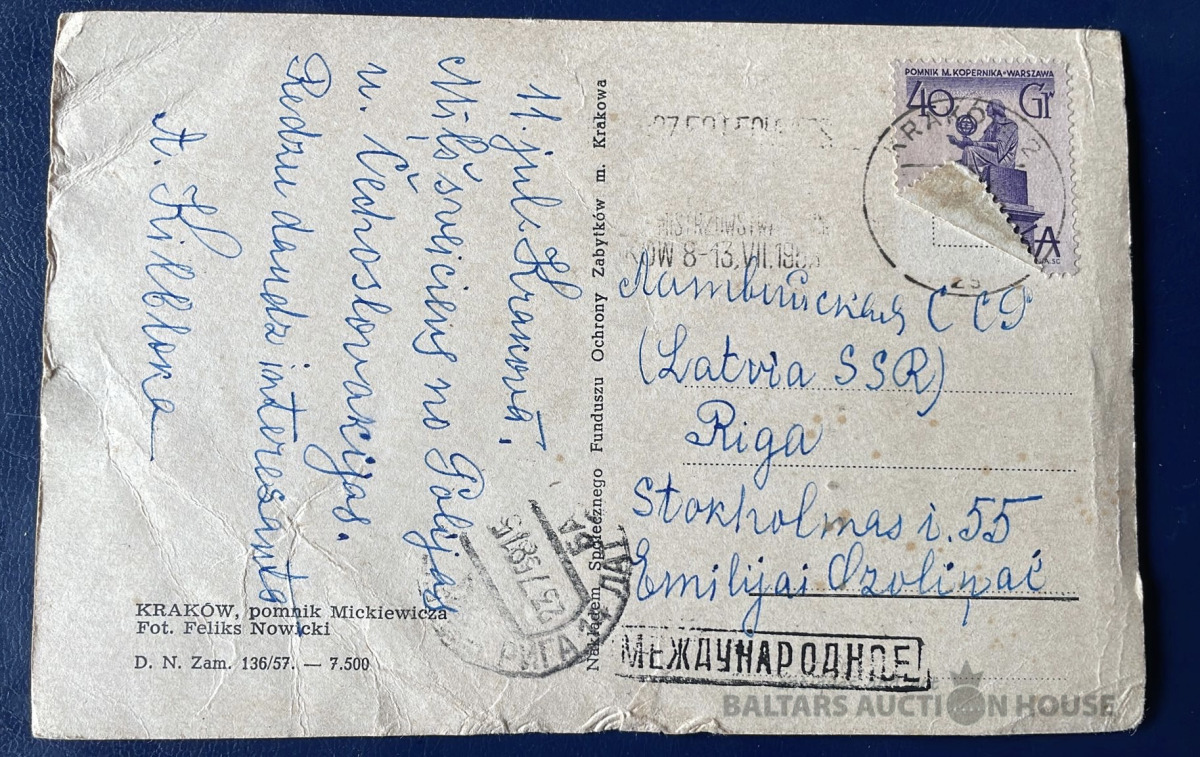 11. jul. Krakovā.
M-ļš sveiciens no Polijas
u. Čechoslovakijas.
Redzu daudz interesanta
A. Kilbloka
KRAKÓW, pomnik Mickiewicza
Fot. Feliks Nowicki
D. N. Zam. 136/57. — 7.500
Nakładem Społecznego Funduszu Ochrony Zabytków m. Krakowa
POMNIK M. KOPERNIKA-WARSZAWA
40 Gr
KRAKÓW 2
MISTRZOSTWA
8-13.VII.195
ССР
(Latvia SSR)
Riga
Stokholmas i. 55
Emilijai Ozoliņai
РИГА
МЕЖДУНАРОДНОЕ
BALTARS AUCTION HOUSE